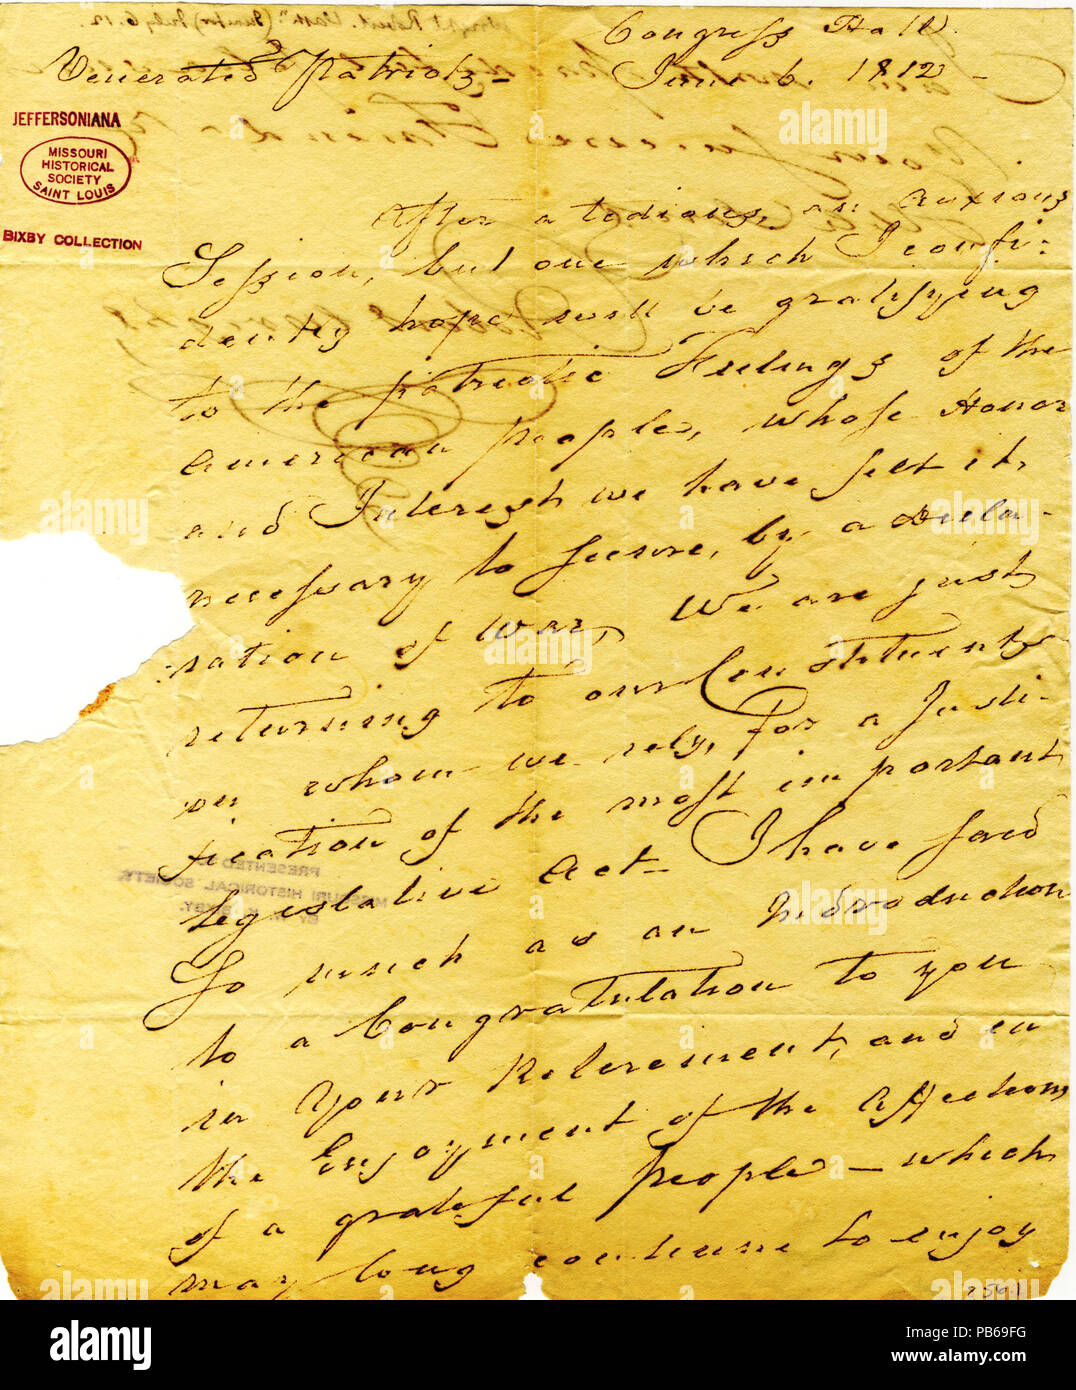 Congress Hall.
June 6. 1812 -
Venerated Patriot -
JEFFERSONIANA
MISSOURI
HISTORICAL
SOCIETY
SAINT LOUIS
BIXBY COLLECTION
After a tedious, an anxious
Session, but one which I confi:
dently hope will be gratifying
to the patriotic Feelings of the
American people, whose Honor
and Interest we have felt it,
necessary to secure, by a Decla-
ration of War, We are just
returning to our Constituents
on whom we rely, for a Justi-
fication of the most important
legislative Act - I have said
So much as an Introduction
to a Congratulation to you
in Your Retirement, and in
the Enjoyment of the Affections
of a grateful people - which
may long continue to enjoy
PRESENTED
MISSOURI HISTORICAL SOCIETY
BIXBY.
alamy
alamy stock photo
PB69FG
www.alamy.com